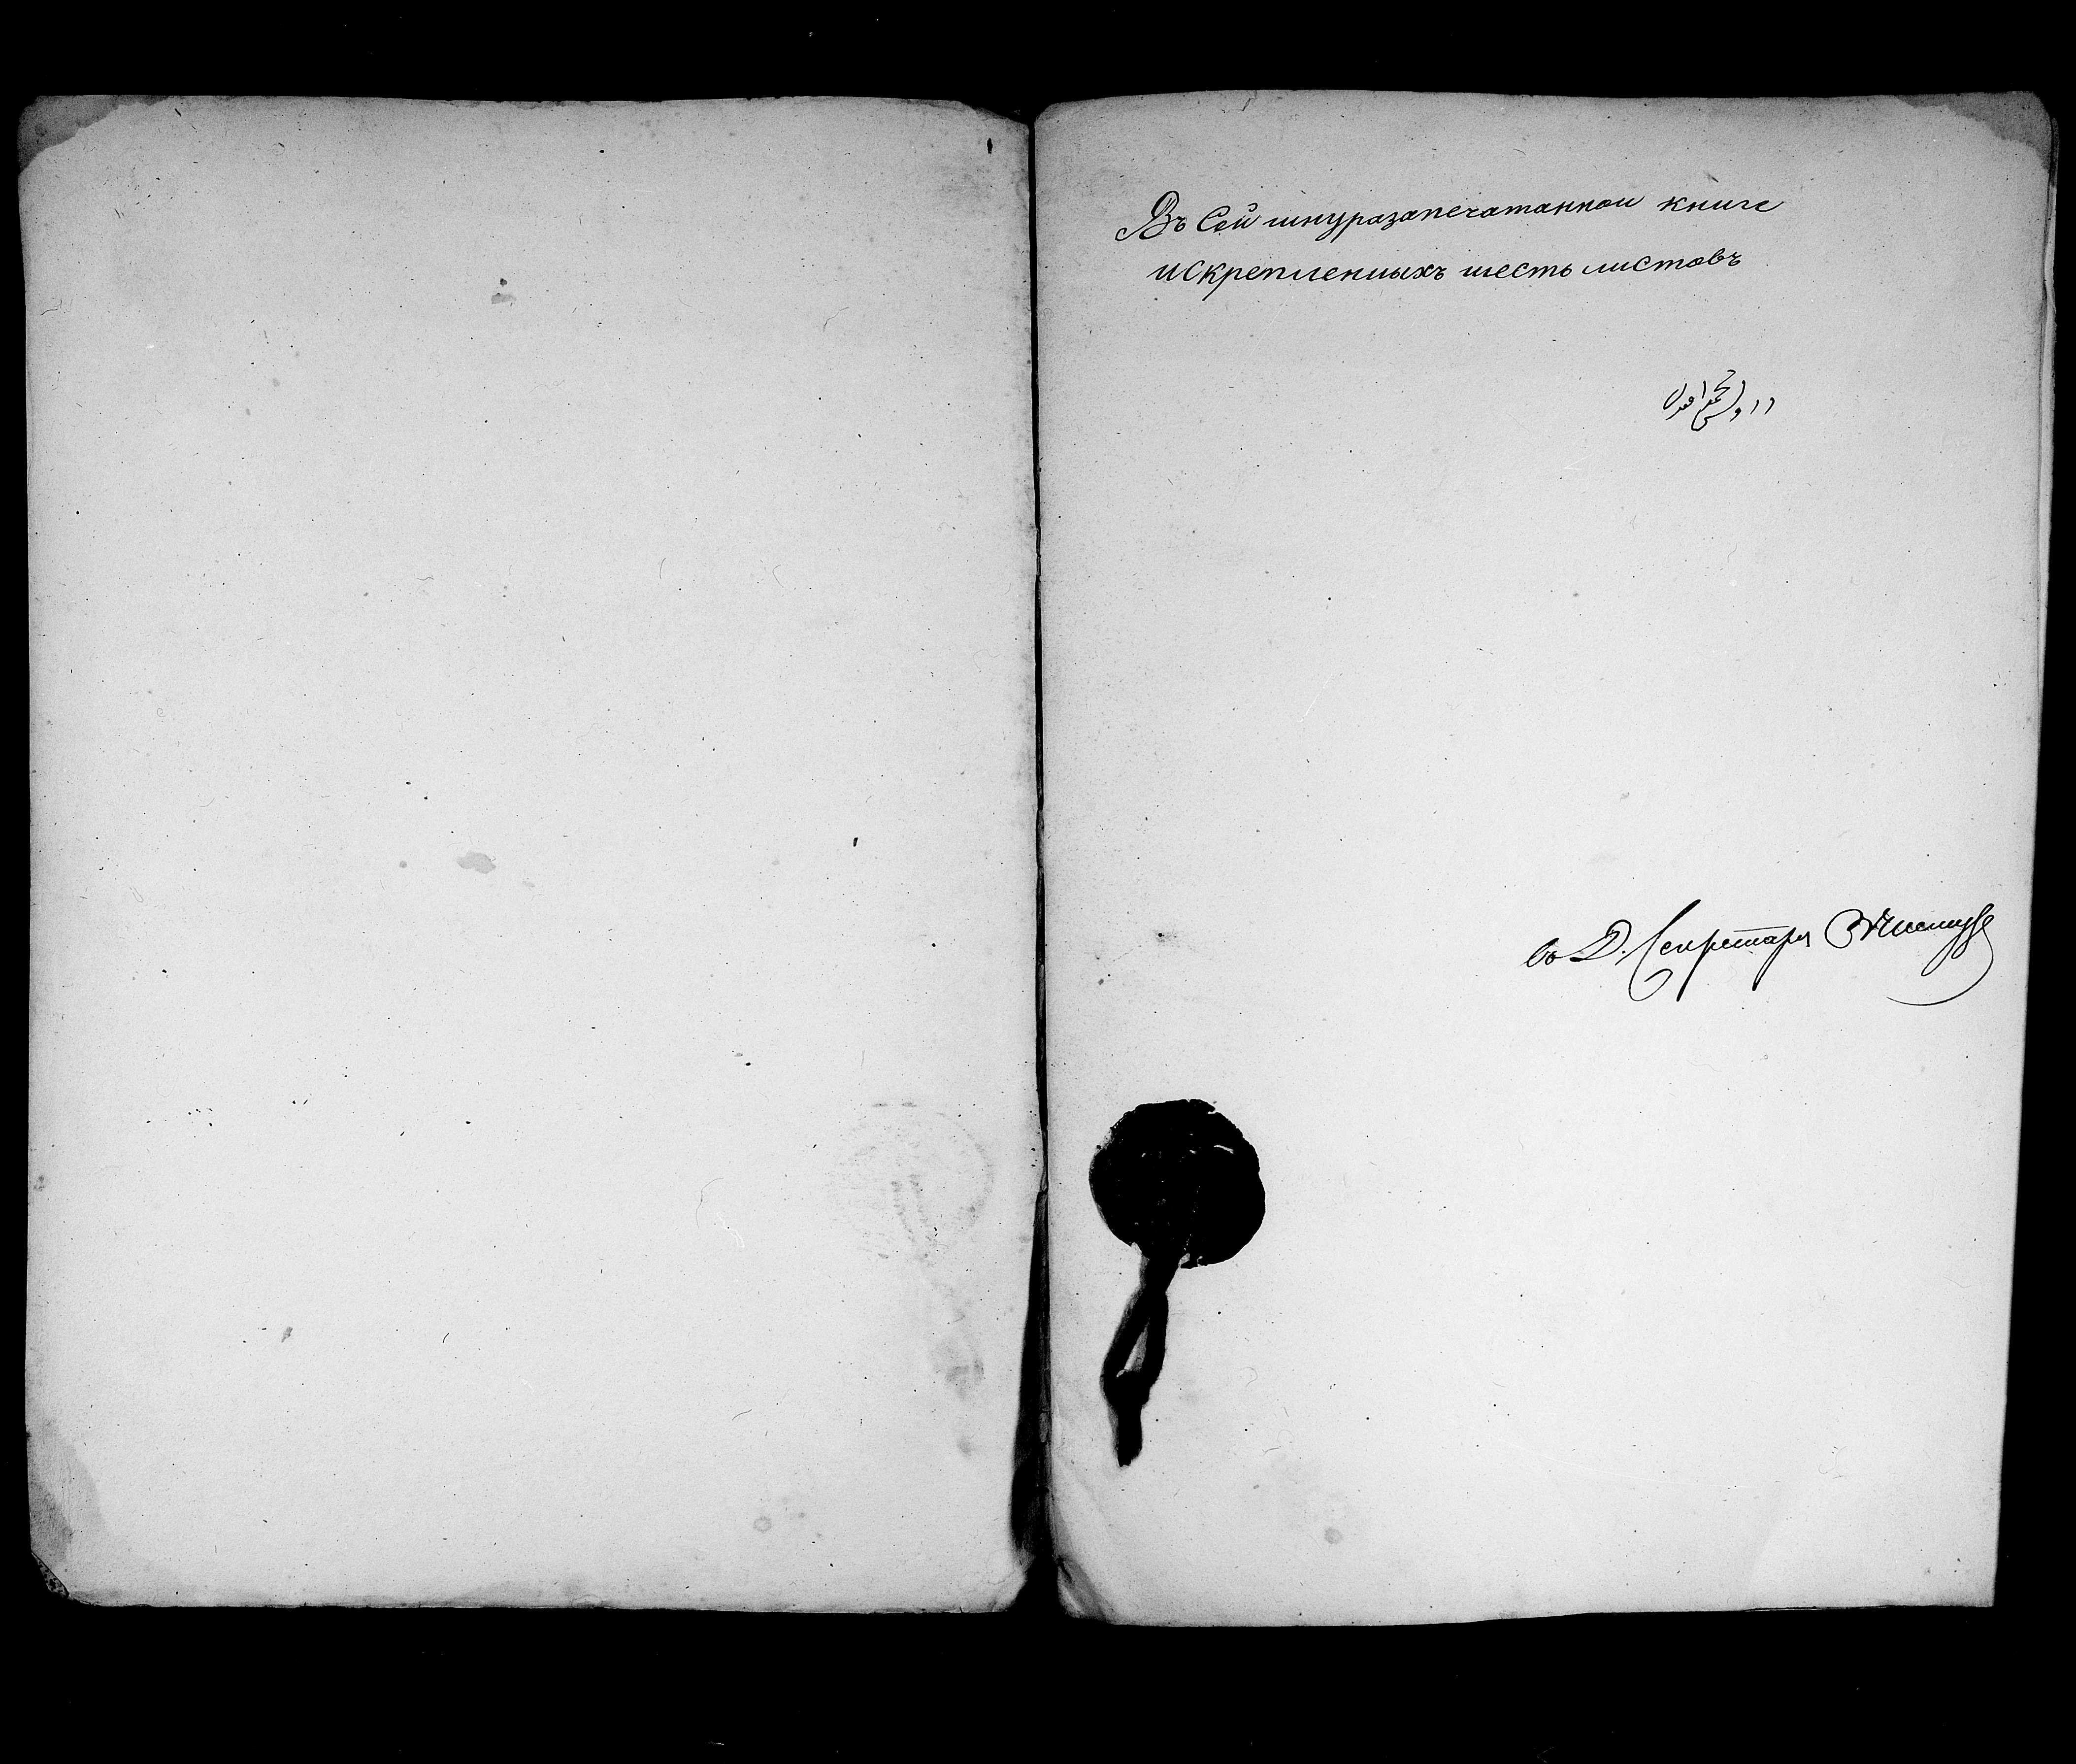 Въ Сей шнуразапечатанной книге
искрепленныхъ шесть листовъ
въ Д. Секретаря